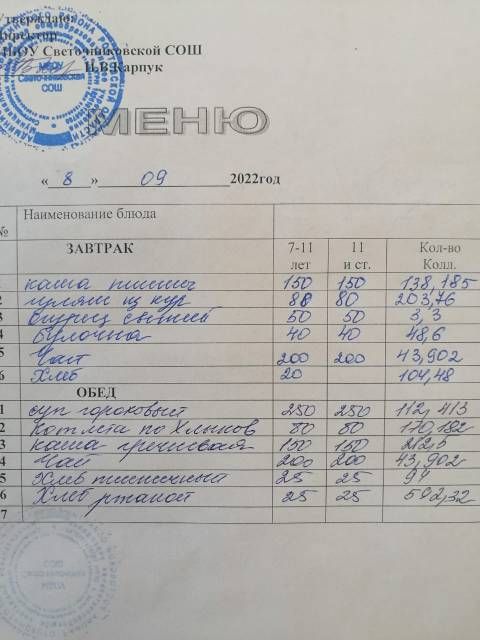 Утверждаю:
Директор
МБОУ Светочниковской СОШ
Н.В.Карпук
МБОУ
Светочниковская
СОШ
МЕНЮ
« 8 » 09 2022год
№ Наименование блюда
ЗАВТРАК 7-11 лет 11 и ст. Кол-во Колл.
каша пшенич 150 150 138,185
2 из кур 80 80 203,76
3 огурец свежий 50 50 3,3
4 Булочка 40 40 48,6
5 Чай 200 200 43,902
6 Хлеб 20 104,48
ОБЕД
1 суп гороховый 250 250 112,413
2 котлета по Хлынов 80 80 170,182
3 каша гречневая 150 150 212,5
4 Чай 200 200 43,902
5 Хлеб пшеничный 25 25 94
6 Хлеб ржаной 25 25 592,32
7